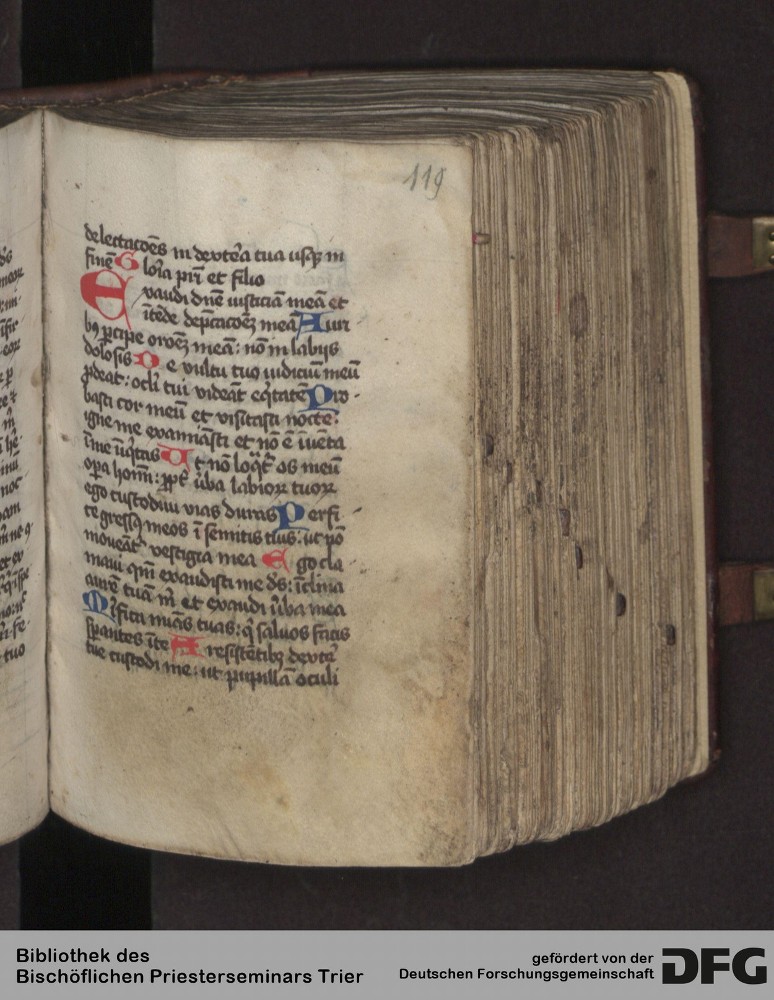 119
delectacōēs in dextera tua usq̄ in
finē Gloria pr̄i et filio
Exaudi dn̄e iusticiā meā et
ītēde dep̄cacōēȝ meā Auri
bꝯ ꝑcipe orōēȝ meā: nō in labijs
dolosis De vultu tuo iudiciū meū
ꝓdeat: oc̄li tui videāt eq̄tatē Pro-
basti cor meū et visitasti nocte:
igne me examiāsti et nō ē īuēta
ī me īiq̄tas Ut nō loq̄t᷑ os meū
oꝑa hoīm: ꝓpt᷑ v̄ba labioꝝ tuoꝝ
ego custodiui vias duras Perfi-
te gressꝯ meos ī semitis tuis: ut nō
moveāt᷑ vestigia mea Ego cla
maui qm̄ exaudisti me ds̄: īclina
aurē tuā m̄ et exaudi v̄ba mea
Mīfica mīas tuas: q̄ saluos facis
sꝑantes ī te A resistētibꝯ dext᷑e
tue custodi me: ut pupillā oculi
Bibliothek des
Bischöflichen Priesterseminars Trier
gefördert von der
Deutschen Forschungsgemeinschaft DFG